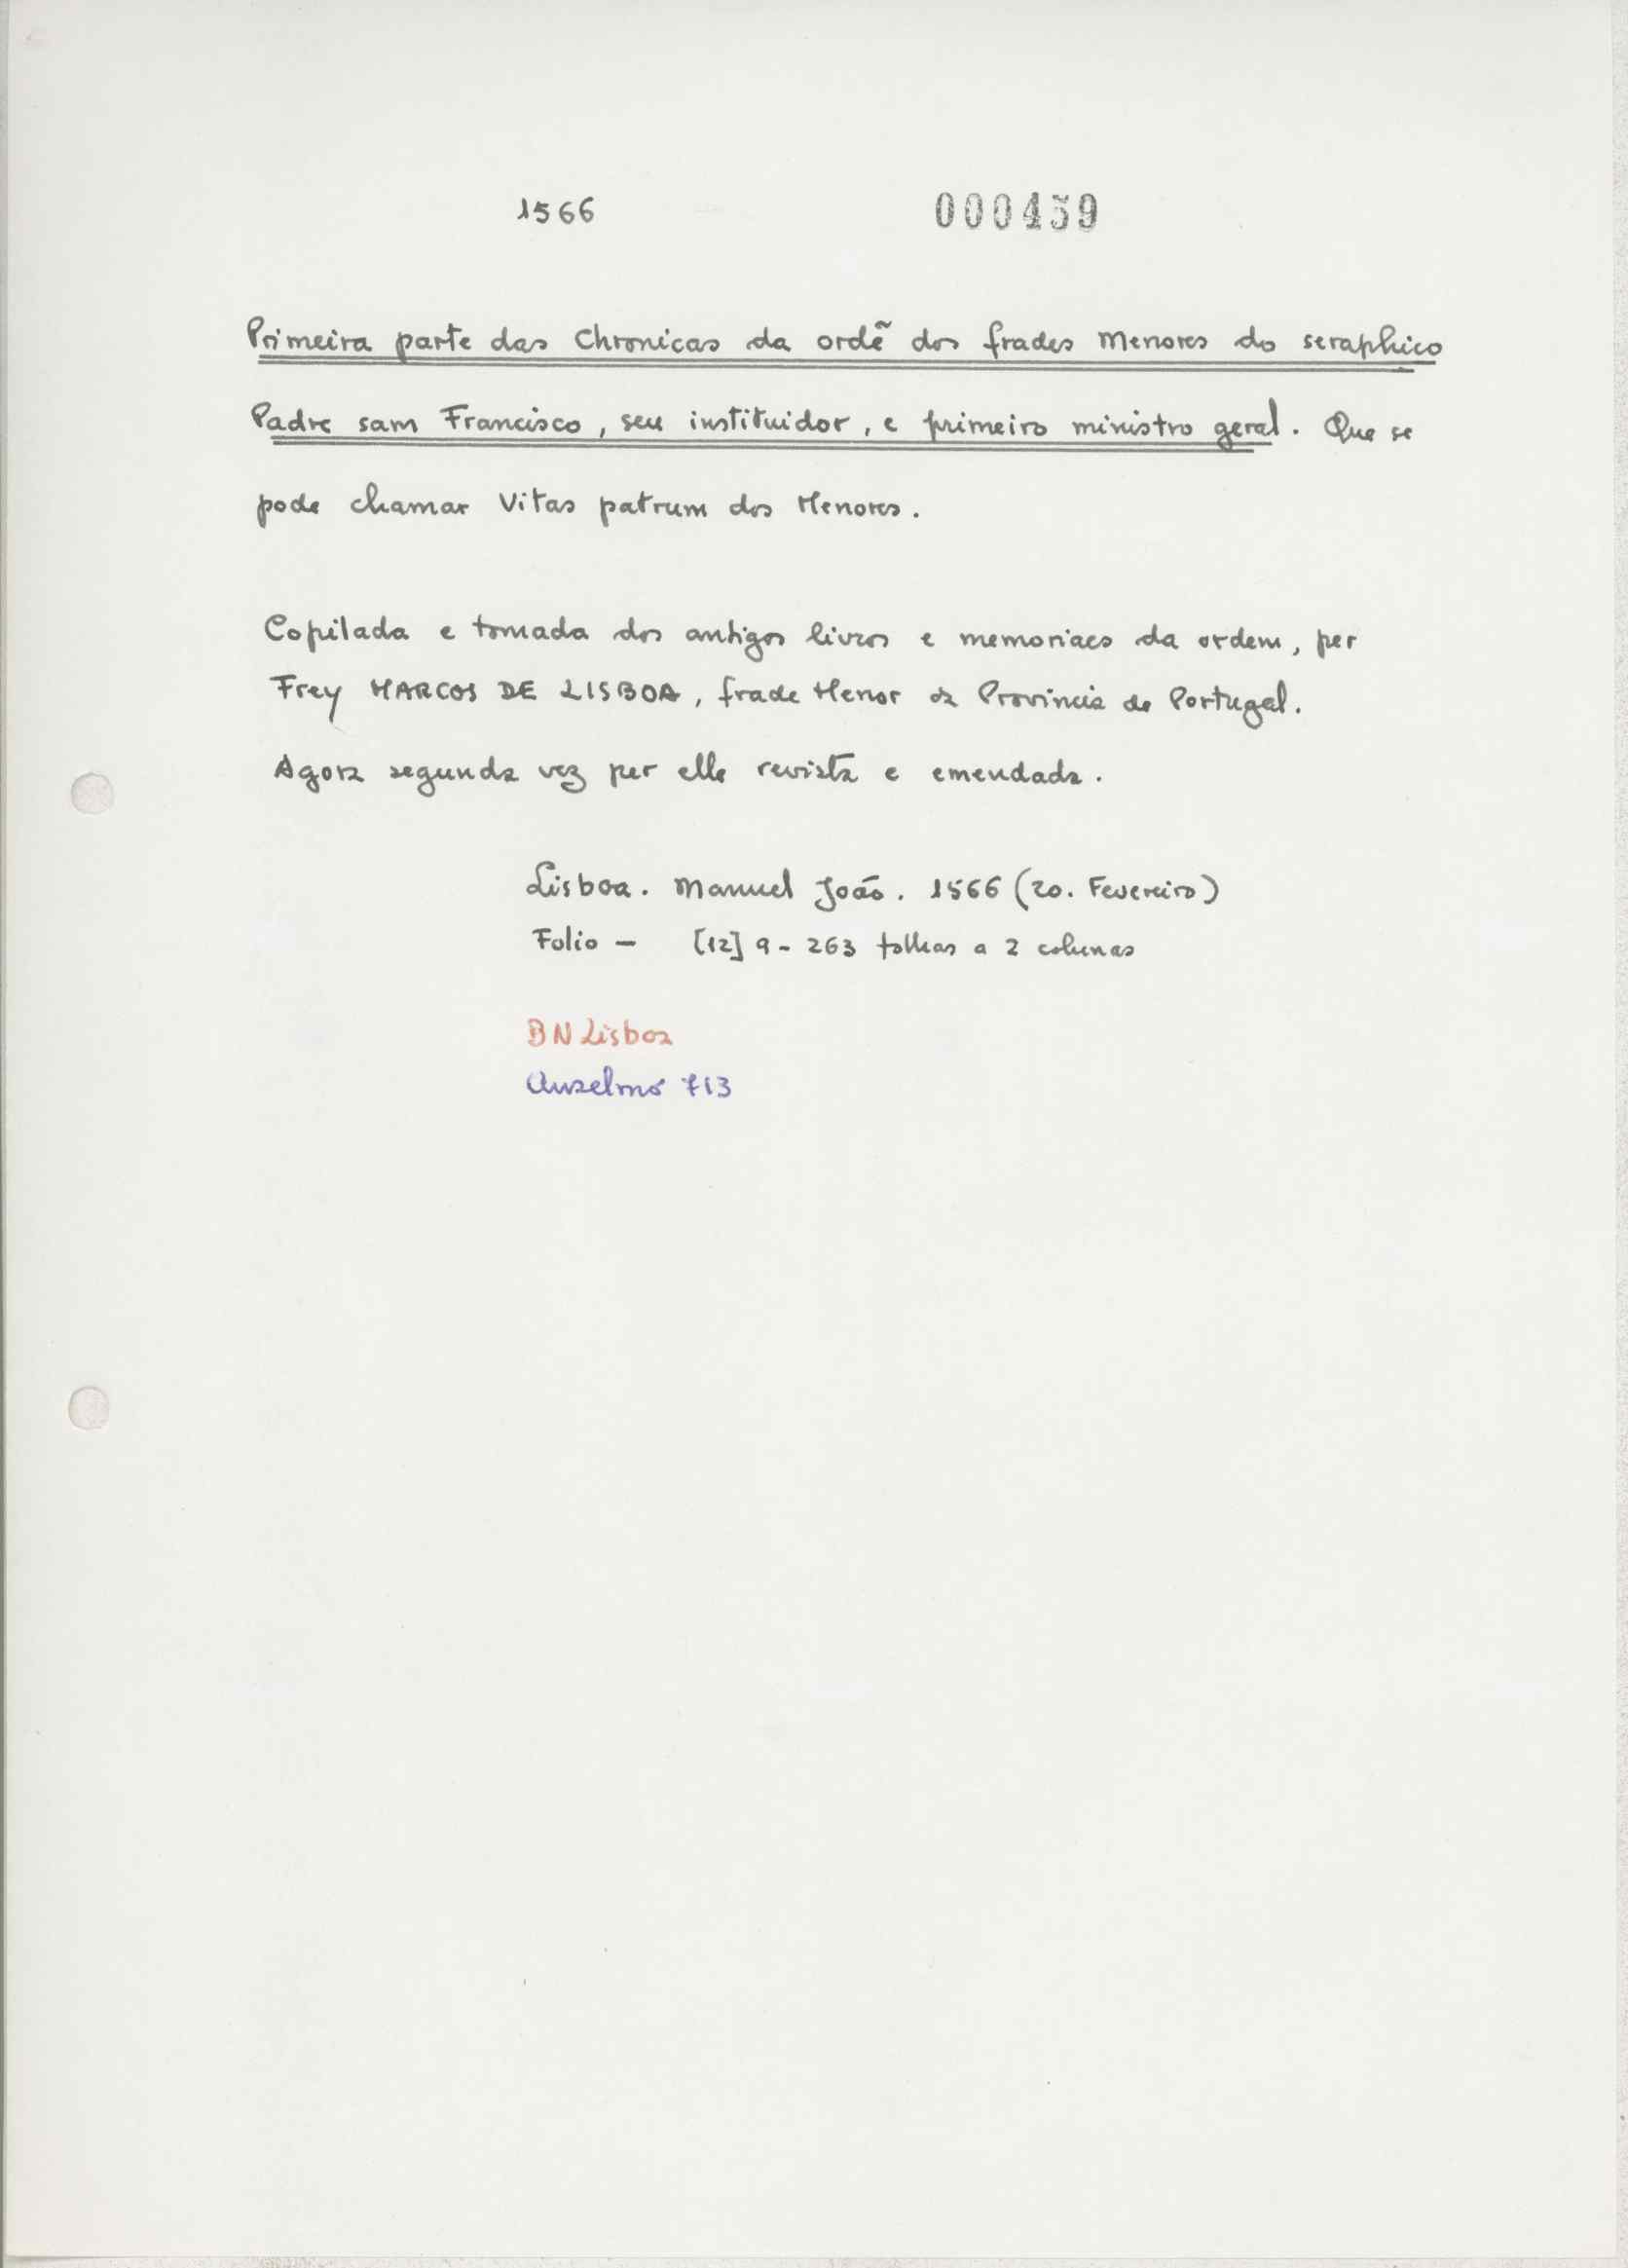 1566 000459
Primeira parte das Chronicas da ordẽ dos frades Menores do seraphico
Padre sam Francisco, seu instituidor, e primeiro ministro geral. Que se
pode chamar Vitas patrum dos Menores.
Copilada e tomada dos antigos livros e memoriaes da ordem, per
Frey MARCOS DE LISBOA, frade Menor da Provincia de Portugal.
Agora segunda vez per elle revista e emendada.
Lisboa. Manuel João. 1566 (20. Fevereiro)
Folio — [12] 9 - 263 folhas a 2 colunas
BN Lisboa
Anselmo 713